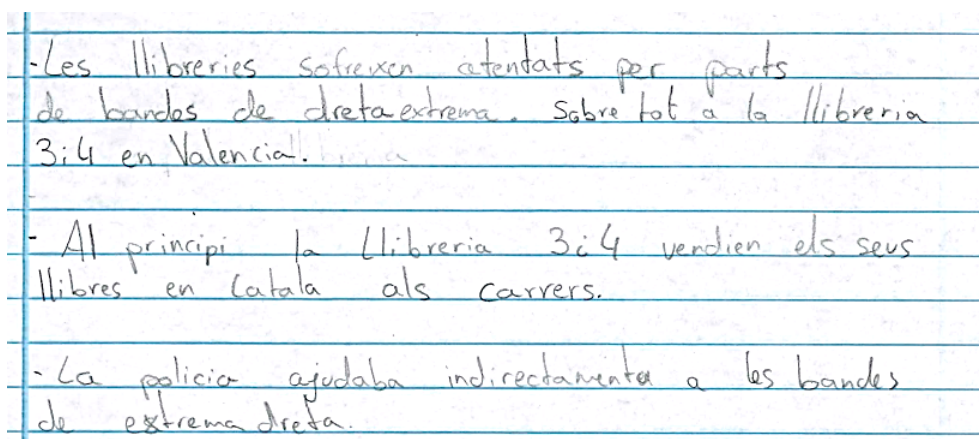 -Les llibreries sofreixen atentats per parts
de bandes de dreta extrema. Sobre tot a la llibreria
3i4 en Valencia.
- Al principi la Llibreria 3i4 vendien els seus
llibres en Catala als carrers.
- La policia ajudaba indirectamenta a les bandes
de extrema dreta.